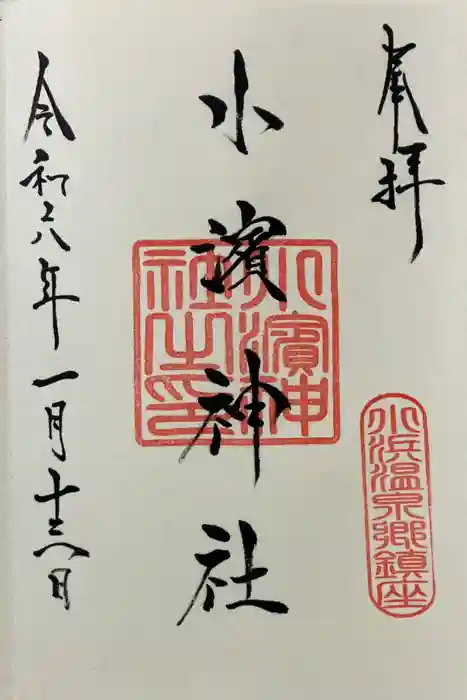 奉拝
小濱神社
小濱神社之印
小浜温泉郷鎮座
令和六年一月十六日